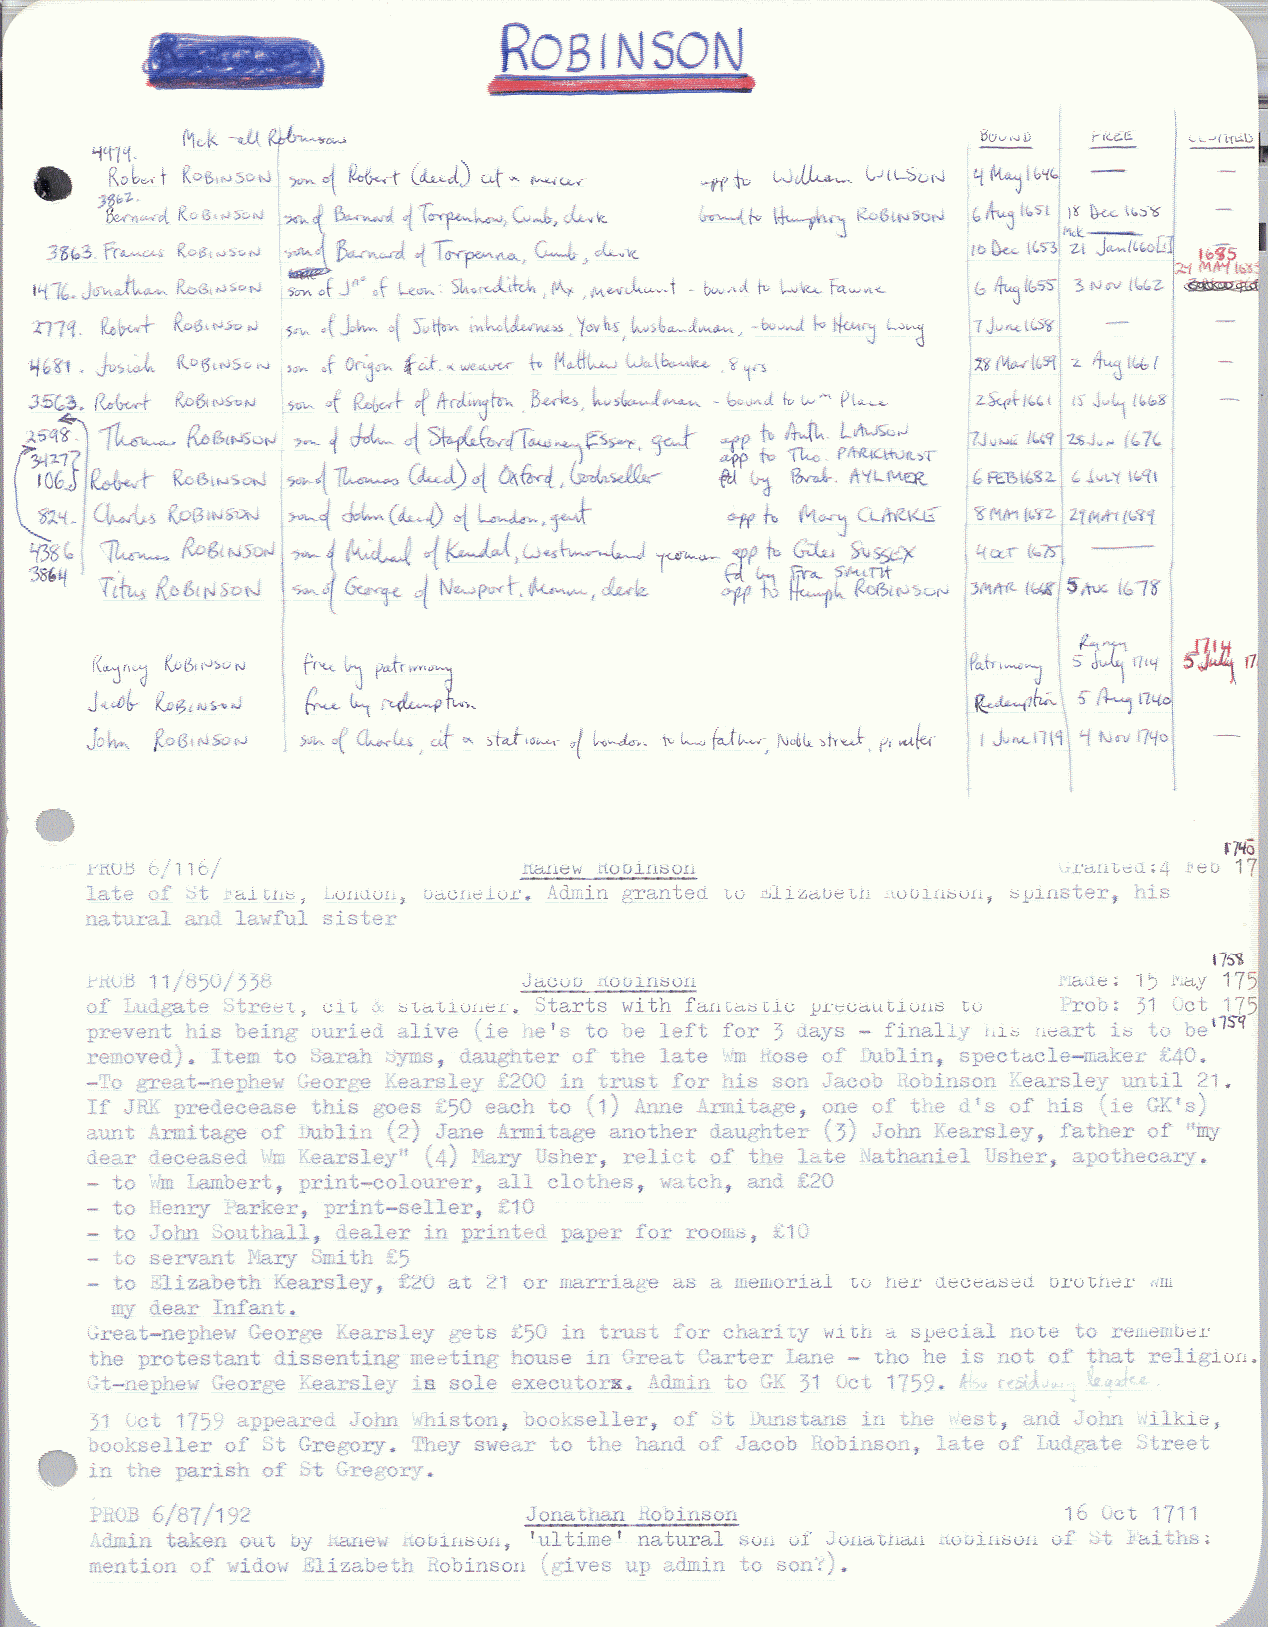 ROBINSON
McK - all Robinsons
BOUND FREE CLOTHED
4479.
Robert ROBINSON son of Robert (decd) cit & mercer app to William WILSON 4 May 1646 — —
3862.
Bernard ROBINSON son of Barnard of Torpenhow, Cumb, clerk bound to Humphrey ROBINSON 6 Aug 1651 18 Dec 1658 —
McK
3863. Frances ROBINSON son of Barnard of Torpenna, Cumb, clerk 10 Dec 1653 21 Jan 1660[1] 1685
24 MAY 1685
1476. Jonathan ROBINSON son of Jno of Leon: Shoreditch, Mx, merchant - bound to Luke Fawne 6 Aug 1655 3 Nov 1662
2779. Robert ROBINSON son of John of Sutton inholderness, Yorks, husbandman, - bound to Henry Long 7 June 1658 — —
4681. Josiah ROBINSON son of Origon cit. & weaver to Matthew Walbanke, 8 yrs 28 Mar 1659 2 Aug 1661 —
3563. Robert ROBINSON son of Robert of Ardington, Berks, husbandman - bound to Wm Place 2 Sept 1661 15 July 1668 —
2598. Thomas ROBINSON son of John of Stapleford Tawney, Essex, gent app to Anth. LAWSON 7 JUNE 1669 28 Jun 1676
3427? app to Tho. PARKHURST
106. Robert ROBINSON son of Thomas (decd) of Oxford, bookseller fd by Brab. AYLMER 6 FEB 1682 6 JULY 1691
824. Charles ROBINSON son of John (decd) of London, gent app to Mary CLARKE 8 MAY 1682 29 MAY 1689
4386 Thomas ROBINSON son of Michael of Kendal, Westmorland yeoman app to Giles SUSSEX 4 OCT 1675 —
3864 fd by Fra SMITH
Titus ROBINSON son of George of Newport, Monm, clerk app to Humph ROBINSON 3 MAR 1668 5 AUG 1678
Rayney 1714
Rayney ROBINSON free by patrimony Patrimony 5 July 1714 5 July 17
Jacob ROBINSON free by redemption Redemption 5 Aug 1740
John ROBINSON son of Charles, cit & stationer of London to his father, Noble street, printer 1 June 1719 4 Nov 1740 —
1740
PROB 6/116/ Ranew Robinson Granted:4 Feb 17
late of St Faiths, London, bachelor. Admin granted to Elizabeth Robinson, spinster, his
natural and lawful sister
1758
PROB 11/850/338 Jacob Robinson Made: 15 May 175
of Ludgate Street, cit & stationer. Starts with fantastic precautions to Prob: 31 Oct 175
prevent his being buried alive (ie he's to be left for 3 days - finally his heart is to be 1759
removed). Item to Sarah Syms, daughter of the late Wm Rose of Dublin, spectacle-maker £40.
-To great-nephew George Kearsley £200 in trust for his son Jacob Robinson Kearsley until 21.
If JRK predecease this goes £50 each to (1) Anne Armitage, one of the d's of his (ie GK's)
aunt Armitage of Dublin (2) Jane Armitage another daughter (3) John Kearsley, father of "my
dear deceased Wm Kearsley" (4) Mary Usher, relict of the late Nathaniel Usher, apothecary.
- to Wm Lambert, print-colourer, all clothes, watch, and £20
- to Henry Parker, print-seller, £10
- to John Southall, dealer in printed paper for rooms, £10
- to servant Mary Smith £5
- to Elizabeth Kearsley, £20 at 21 or marriage as a memorial to her deceased brother Wm
my dear Infant.
Great-nephew George Kearsley gets £50 in trust for charity with a special note to remember
the protestant dissenting meeting house in Great Carter Lane - tho he is not of that religion.
Gt-nephew George Kearsley is sole executorx. Admin to GK 31 Oct 1759. Also residuary legatee.
31 Oct 1759 appeared John Whiston, bookseller, of St Dunstans in the West, and John Wilkie,
bookseller of St Gregory. They swear to the hand of Jacob Robinson, late of Ludgate Street
in the parish of St Gregory.
PROB 6/87/192 Jonathan Robinson 16 Oct 1711
Admin taken out by Ranew Robinson, 'ultime' natural son of Jonathan Robinson of St Faiths;
mention of widow Elizabeth Robinson (gives up admin to son?).